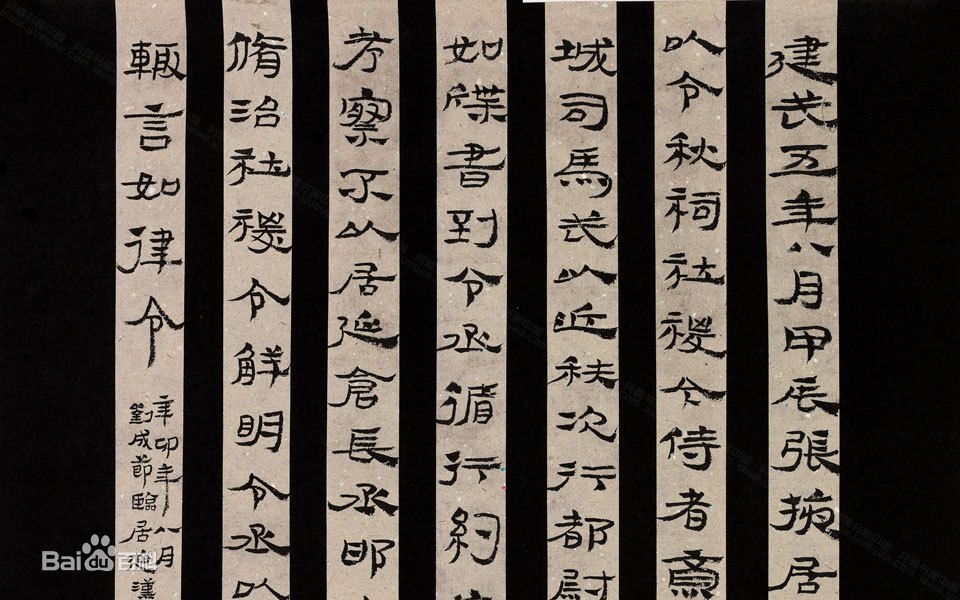 建武五年八月甲辰張掖居
以令秋祠社稷今侍者齋
城司馬武以近秩次行都尉
如牒書到令丞循行約
考察不以居延倉長丞邯
脩治社稷令鮮明令丞以
輒言如律令
辛卯年八月
劉成節臨居延漢
Bai百科